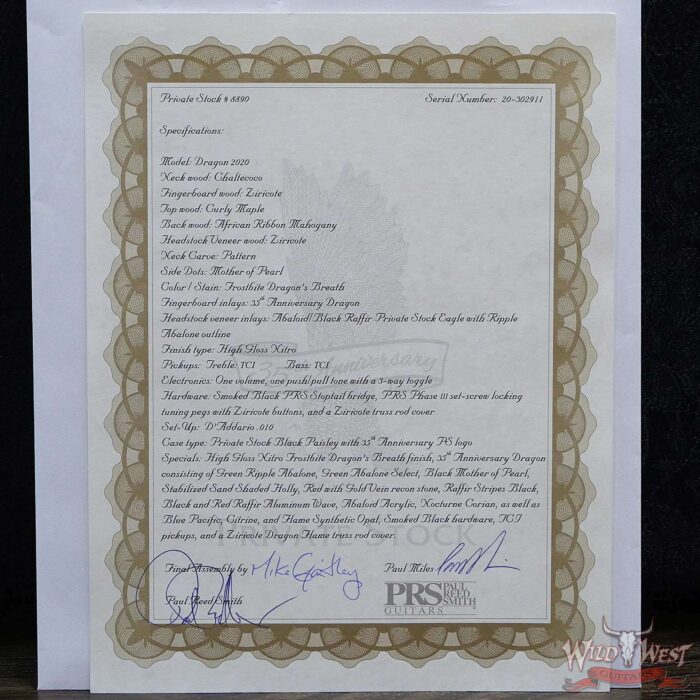 Private Stock # 8890 Serial Number: 20-302911
Specifications:
Model: Dragon 2020
Neck wood: Chaltecoco
Fingerboard wood: Ziricote
Top wood: Curly Maple
Back wood: African Ribbon Mahogany
Headstock Veneer wood: Ziricote
Neck Carve: Pattern
Side Dots: Mother of Pearl
Color / Stain: Frostbite Dragon's Breath
Fingerboard inlays: 35th Anniversary Dragon
Headstock veneer inlays: Abaloid/Black Raffir Private Stock Eagle with Ripple
Abalone outline
Finish type: High Gloss Nitro
35th Anniversary
Pickups: Treble: TCI Bass: TCI
Electronics: One volume, one push/pull tone with a 3-way toggle
Hardware: Smoked Black PRS Stoptail bridge, PRS Phase III set-screw locking
tuning pegs with Ziricote buttons, and a Ziricote truss rod cover
Set-Up: D'Addario .010
Case type: Private Stock Black Paisley with 35th Anniversary PS logo
Specials: High Gloss Nitro Frostbite Dragon's Breath finish, 35th Anniversary Dragon
consisting of Green Ripple Abalone, Green Abalone Select, Black Mother of Pearl,
Stabilized Sand Shaded Holly, Red with Gold Vein recon stone, Raffir Stripes Black,
Black and Red Raffir Aluminum Wave, Abaloid Acrylic, Nocturne Corian, as well as
Blue Pacific, Citrine, and Flame Synthetic Opal, Smoked Black hardware, TCI
pickups, and a Ziricote Dragon Flame truss rod cover.
PRIVATE STOCK
Final Assembly by Paul Miles
Paul Reed Smith
PRS PAUL REED SMITH
GUITARS
WILD WEST
GUITARS